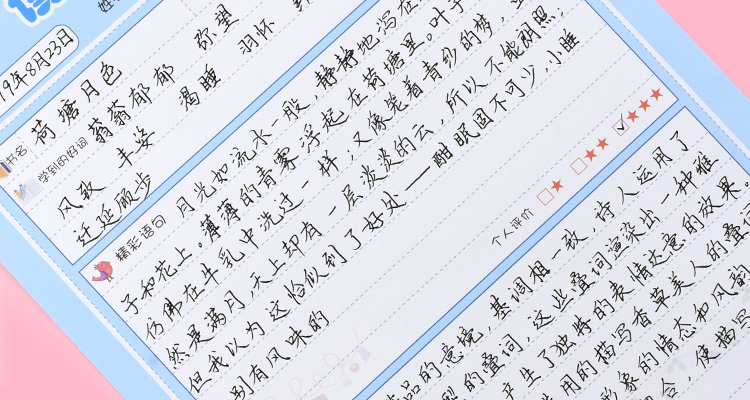 19年8月23日
书名 荷塘月色
学到的好词 蓊蓊郁郁 弥望
风致 丰姿 渴睡 羽怀
迁延顾步
精彩语句 月光如流水一般，静静地泻在
子和花上。薄薄的青雾浮起在荷塘里。叶子
仿佛在牛乳中洗过一样，又像笼着青纱的梦，
然是满月，天上却有一层淡淡的云，所以不能朗照
但我以为这恰似到了好处——酣眠固不可少，小睡
别有风味的
个人评价 □★ □★★ ☑★★★
品的意境，基调相一致，诗人运用了
型的叠词，这些叠词渲染出一种雅
产生了独特的表情达意的效果
用的描写香草美人的叠词
形象的情态和风韵
合，使描写